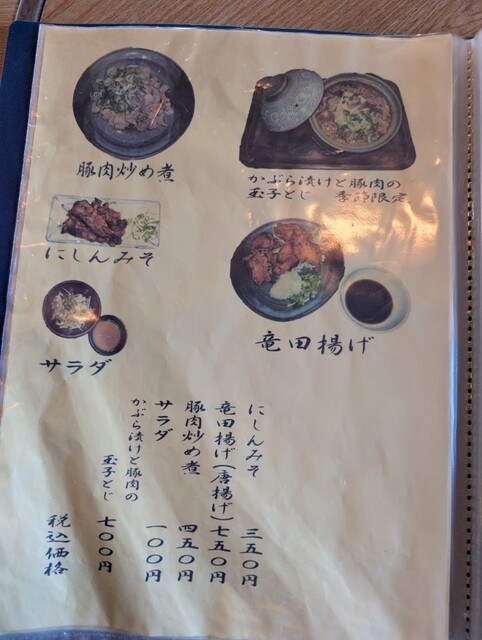 豚肉炒め煮
かぶら漬けと豚肉の
玉子とじ 季節限定
にしんみそ
竜田揚げ
サラダ
にしんみそ 三五〇円
竜田揚げ(唐揚げ) 七五〇円
豚肉炒め煮 四五〇円
サラダ 一〇〇円
かぶら漬けと豚肉の
玉子とじ 七〇〇円
税込価格